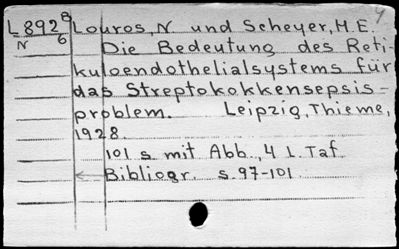 L892⁸ Louros, N und Scheyer, H.E.
N 6 Die Bedeutung des Reti-
kuloendothelialsystems für
das Streptokokkensepsis-
problem. Leipzig, Thieme,
1928.
101 s. mit Abb., 4 L. Taf.
Bibliogr. s. 97-101.